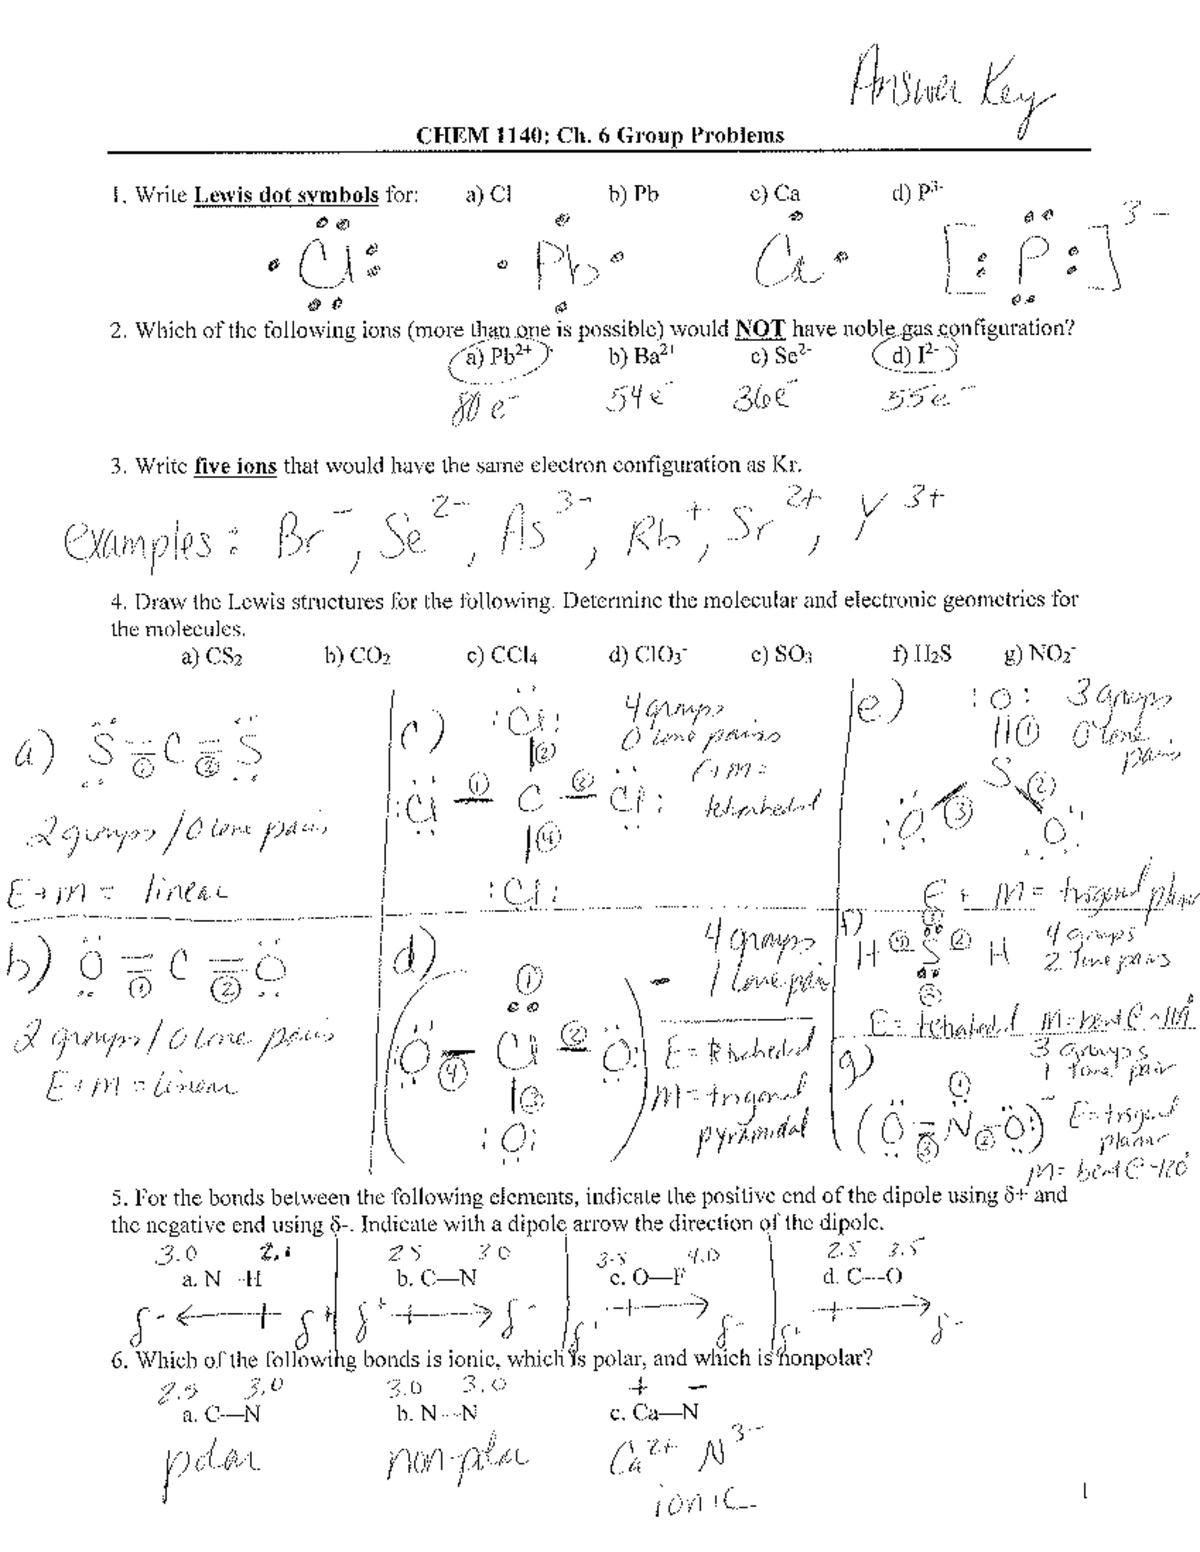 Answer Key
CHEM 1140; Ch. 6 Group Problems
1. Write Lewis dot symbols for: a) Cl b) Pb c) Ca d) P3-
Cl Pb Ca [ P ] 3-
2. Which of the following ions (more than one is possible) would NOT have noble gas configuration?
a) Pb2+ b) Ba2+ c) Se2- d) I2-
80 e- 54 e- 36 e- 55 e-
3. Write five ions that would have the same electron configuration as Kr.
examples: Br-, Se2-, As3-, Rb+, Sr2+, Y3+
4. Draw the Lewis structures for the following. Determine the molecular and electronic geometries for
the molecules.
a) CS2 b) CO2 c) CCl4 d) ClO3- e) SO3 f) H2S g) NO2-
a) S = C = S
① ②
2 groups / 0 lone pairs
E + M = linear
b) O = C = O
① ②
2 groups / 0 lone pairs
E + M = linear
c) Cl
②
Cl ① C ③ Cl
④
Cl
4 groups
0 lone pairs
E + M =
tetrahedral
d) ①
O ④ Cl ② O
③
O
-
4 groups
1 lone pair
E = tetrahedral
M = trigonal
pyramidal
e) O
①
S
③ ②
O O
3 groups
0 lone
pairs
E + M = trigonal planar
f) H S H
4 groups
2 lone pairs
E = tetrahedral M = bent @ ~109°
g) (O = N - O)-
① ③ ②
3 groups
1 lone pair
E = trigonal
planar
M = bent @ ~120°
5. For the bonds between the following elements, indicate the positive end of the dipole using δ+ and
the negative end using δ-. Indicate with a dipole arrow the direction of the dipole.
3.0 2.1 2.5 3.0 3.5 4.0 2.5 3.5
a. N--H b. C—N c. O—F d. C---O
δ- δ+ δ+ δ- δ+ δ- δ+ δ-
6. Which of the following bonds is ionic, which is polar, and which is nonpolar?
2.5 3.0 3.0 3.0 + -
a. C---N b. N---N c. Ca—N
polar non-polar Ca2+ N3-
ionic
1